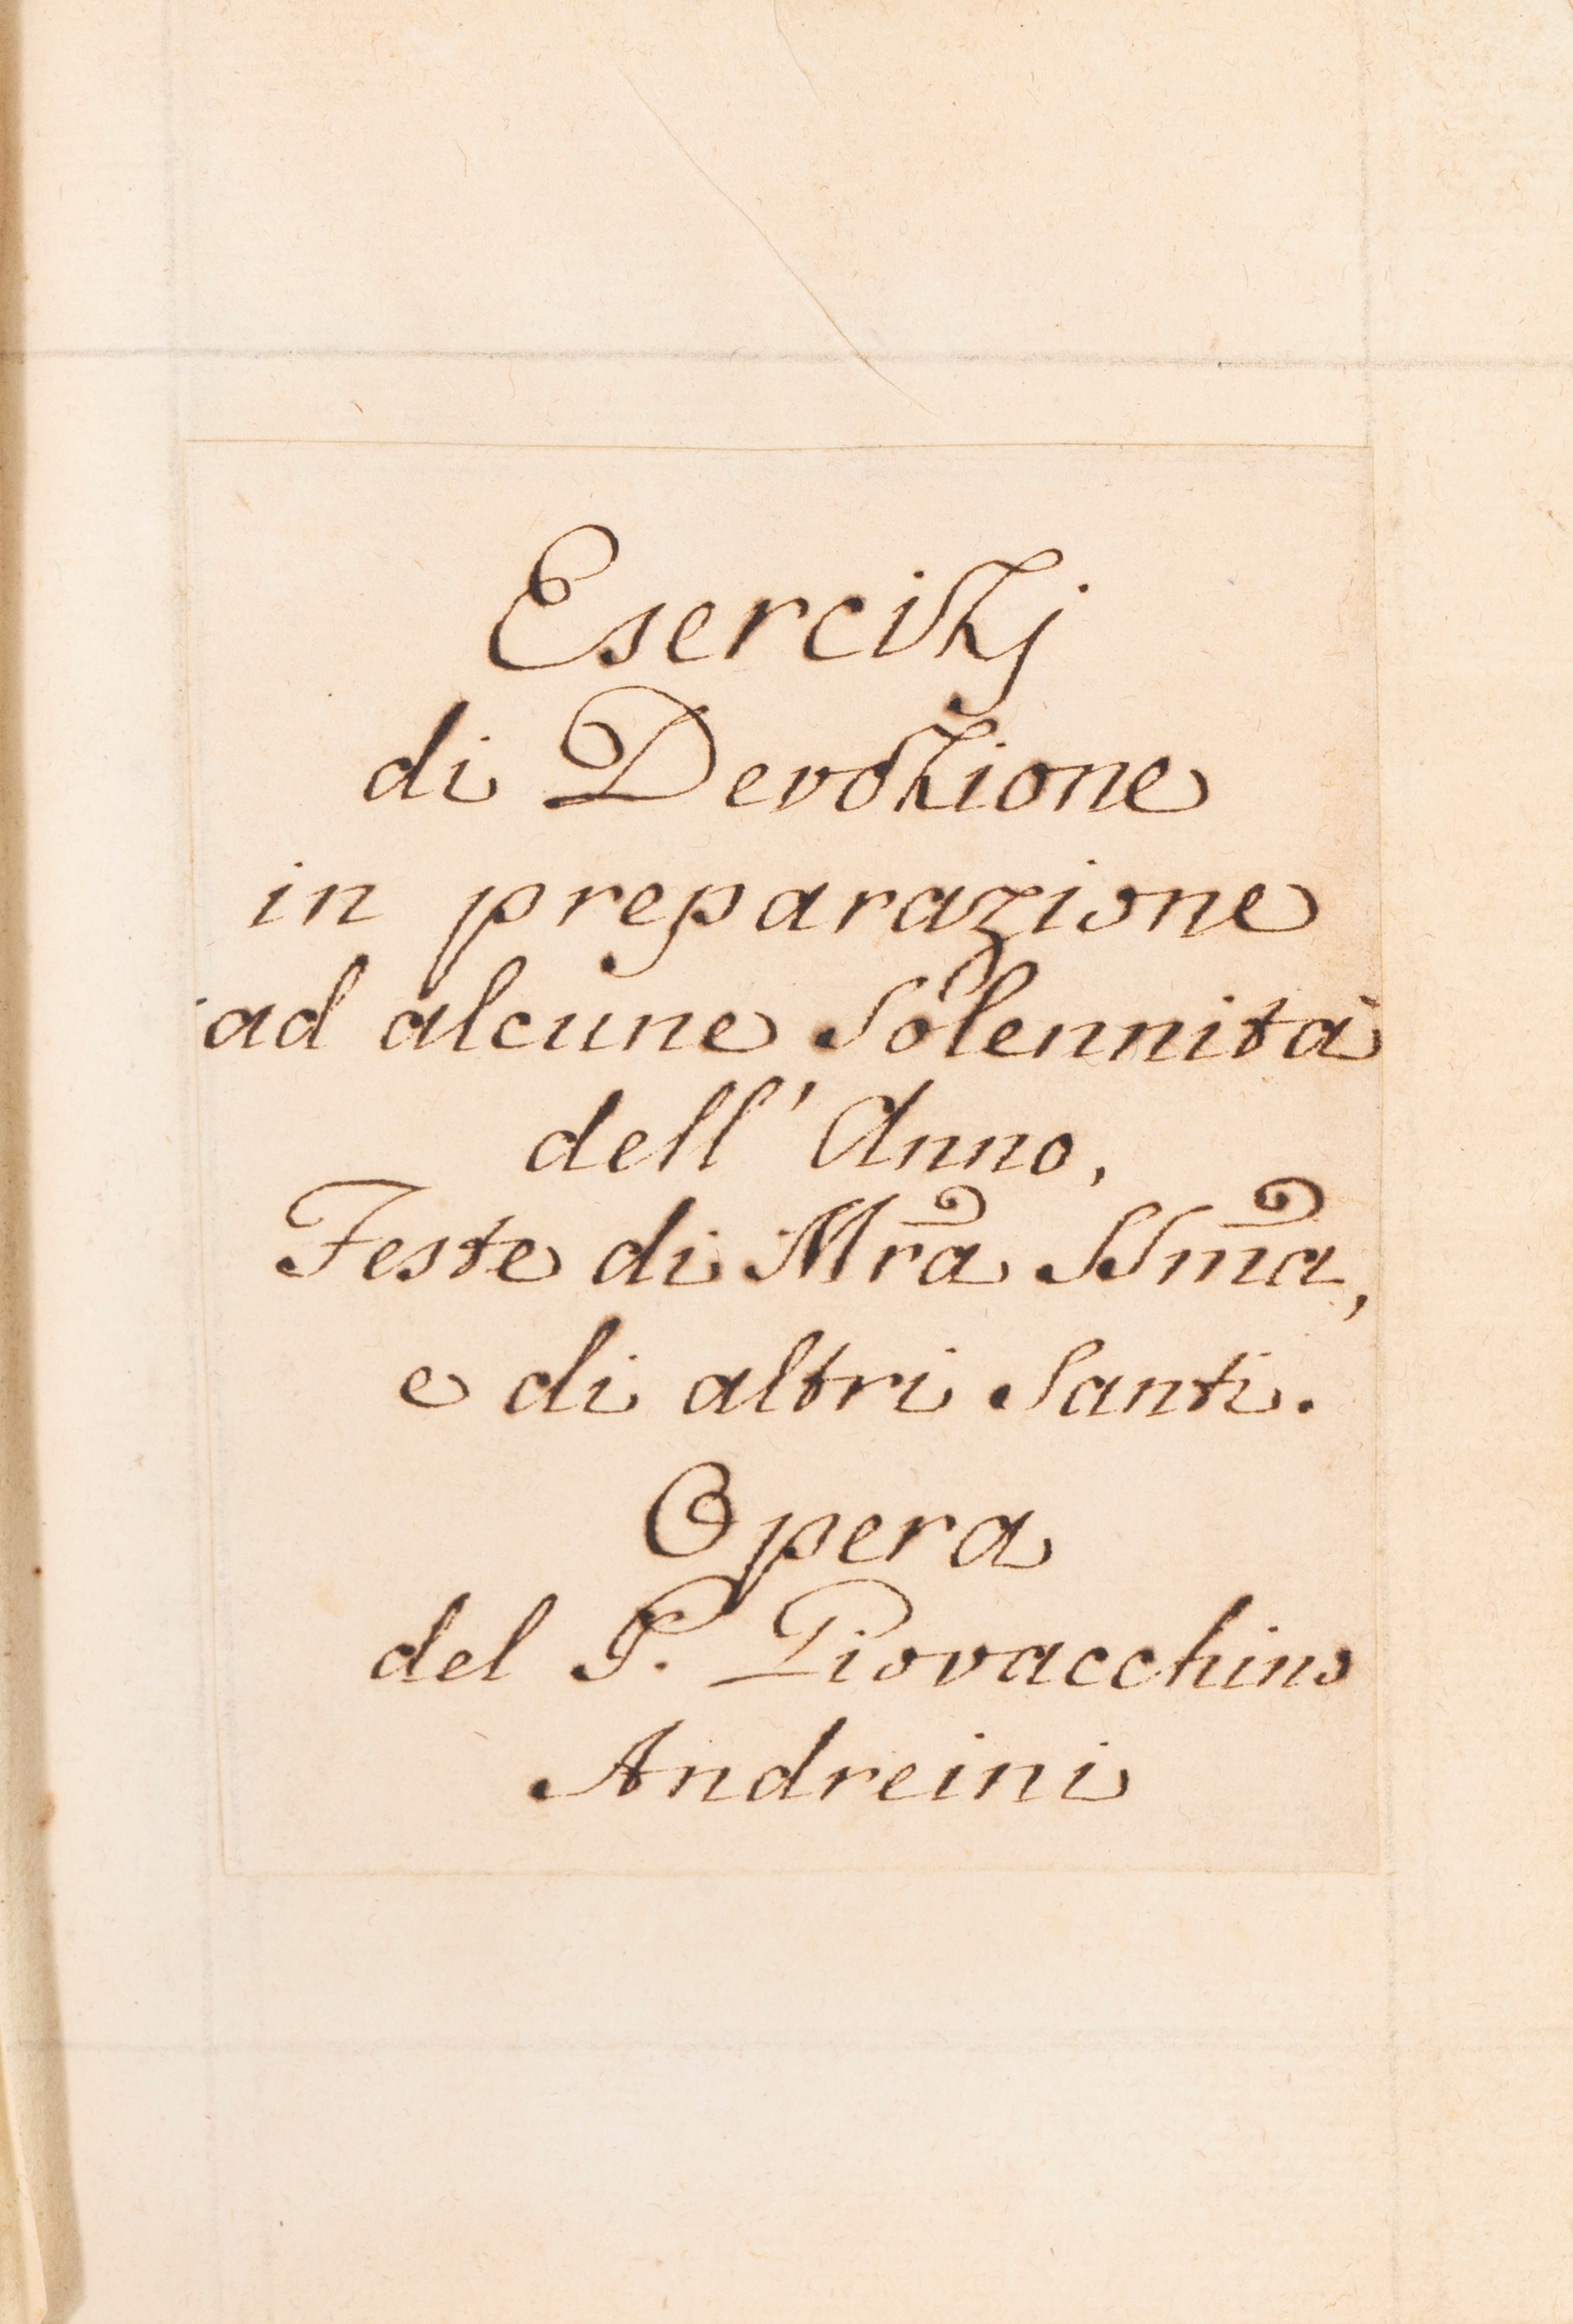 Esercizj
di Devozione
in preparazione
ad alcune Solennità
dell' Anno,
Feste di Mra SSma,
e di altri Santi.
Opera
del P. Giovacchino
Andreini